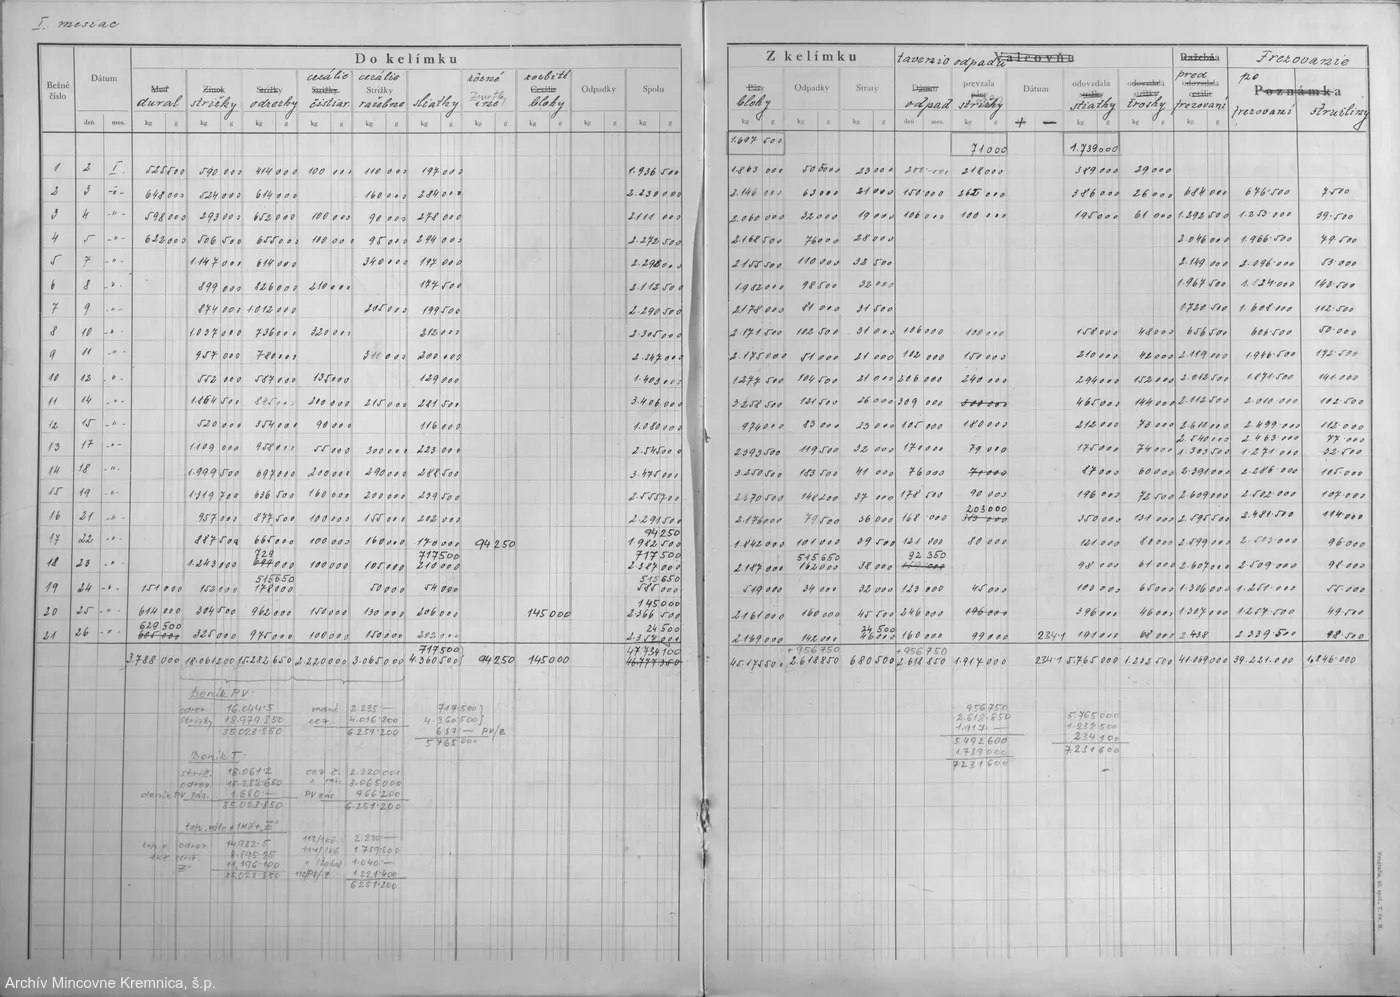 I. mesiac
Do kelímku
Bežné číslo
Dátum
deň mes.
dural
strižky
odrezky
cezálie čistiar.
cezálie Strižky razobné
sliatky
rôzné iné
rozbitť bloky
Odpadky
Spolu
kg g
Z kelímku
tavenie odpadu
Valcovňa
Ražebňa
Frezovanie
Poznámka
bloky
Odpadky
Straty
Dátum odpad
prevzala strižky
+ −
Dátum
odovzdala sliatky
trosky
pred frezovaní
po frezovaní
strušliny
1.697 500
71 000
1.739 000
1 2 I. 525 500 590 000 414 000 100 000 110 000 197 000 1.936 500
2 3 -"- 648 000 524 000 614 000 160 000 284 000 2.230 000
2.146 000 63 000 21 000 150 000 265 000 386 000 26 000 684 000 676 500 7 500
3 4 -"- 598 000 293 000 652 000 100 000 90 000 278 000 2.111 000
2.060 000 32 000 19 000 106 000 100 000 195 000 61 000 1.292 500 1.253 000 39 500
4 5 -"- 622 000 506 500 655 000 100 000 95 000 294 000 2.272 500
2.168 500 76 000 28 000 2.046 000 1.966 500 79 500
5 7 -"- 1.147 000 614 000 340 000 197 000
2.155 500 110 000 32 500 2.149 000 2.096 000 53 000
6 8 -"- 899 000 210 000 174 500 2.112 500
1.982 000 98 500 32 000 1.967 500 1.824 000 143 500
7 9 -"- 874 000 1.012 000 205 000 199 500 2.290 500
2.178 000 81 000 31 500 1.720 500 1.608 000 112 500
8 10 -"- 1.037 000 736 000 320 000 212 000 2.305 000
2.171 500 102 500 31 000 106 000 100 000 158 000 48 000 656 500 606 500 50 000
9 11 -"- 957 000 780 000 310 000 200 000 2.247 000
2.175 000 51 000 21 000 102 000 150 000 210 000 42 000 2.119 000 1.946 500 172 500
10 12 -"- 552 000 587 000 135 000 129 000 1.403 000
1.277 500 104 500 21 000 206 000 240 000 294 000 152 000 2.012 500 1.871 500 141 000
11 14 -"- 1.864 500 845 000 200 000 215 000 281 500 3.406 000
3.258 500 121 500 26 000 309 000 300 000 465 000 144 000 2.112 500 2.010 000 102 500
12 15 -"- 520 000 354 000 90 000 116 000 1.080 000
974 000 83 000 23 000 105 000 180 000 212 000 73 000 2.610 000 2.499 000 112 000
2.540 000 2.463 000 77 000
13 17 -"- 1.109 000 958 000 55 000 300 000 223 000 2.545 000
2.393 500 119 500 32 000 170 000 79 000 175 000 74 000 1.303 500 1.271 000 32 500
14 18 -"- 1.999 500 697 000 200 000 290 000 288 500 3.475 000
3.250 500 183 500 41 000 76 000 71 000 87 000 60 000 2.391 000 2.286 000 105 000
15 19 -"- 1.319 700 636 500 160 000 200 000 239 500
2.370 500 148 200 37 000 178 500 90 000 196 000 72 500 2.609 000 2.502 000 107 000
203 000
16 21 -"- 957 000 877 500 100 000 155 000 202 000 2.291 500
2.176 000 79 500 36 000 168 000 313 000 350 000 131 000 2.595 500 2.481 500 114 000
94 250
17 22 -"- 887 500 665 000 100 000 160 000 170 000 94 250 1.982 500
1.842 000 101 000 39 500 121 000 80 000 121 000 80 000 2.599 000 2.503 000 96 000
729 717 500 717 500
515 650 92 350
18 23 -"- 1.243 000 699 000 100 000 105 000 210 000 2.387 000
2.187 000 162 000 38 000 98 000 61 000 2.607 000 2.509 000 98 000
515 650 515 650
19 24 -"- 151 000 152 000 178 000 50 000 54 000 585 000
519 000 34 000 32 000 123 000 45 000 103 000 65 000 1.306 000 1.251 000 55 000
145 000
20 25 -"- 614 000 304 500 962 000 150 000 130 000 206 000 145 000 2.366 500
2.161 000 160 000 45 500 246 000 196 000 396 000 46 000 1.307 000 1.257 500 49 500
629 500 24 500
24 500
21 26 -"- 605 000 325 000 975 000 100 000 150 000 202 000 2.357 000
2.169 000 142 000 46 000 160 000 99 000 234·1 191 000 68 000 2.438 2.339 500 98 500
717 500 47.739 100
+956 750 +956 750
3.788 000 18.061 200 15.282 650 2.220 000 3.065 000 4.360 500 94 250 145 000 46.777 350
45.175 500 2.618 850 680 500 2.618 850 1.917 000 234·1 5.765 000 1.232 500 41.069 000 39.221 000 1.846 000
Denník PV:
odrez. 16.044·5
strižky 18.979·350
35.023·850
2.235 —
cez. 4.016·200
6.251·200
717 500
4.360 500
687 — PV/Z
5 765 000
Denník T:
striž. 18.061·2
odrez. 15.282·650
denník PV zás. 1.680 —
35.023·850
cez. č. 2.220·000
" raž. 3.065·000
PV zás. 966·200
6.251·200
odrez. 14.932·5
1KZ striž. 8.895·25
"Z" 11.196·100
35.023·850
2.230 —
1.040 —
112/PV/Z 1.221·400
6.251·200
956 750
2.618·850
1.917 —
5 492 600
1.739 000
7 231 600
5.765 000
1.232·500
234 100
7.231 600
Neografia, úč. spol., T. Sv. M.
Archív Mincovne Kremnica, š.p.